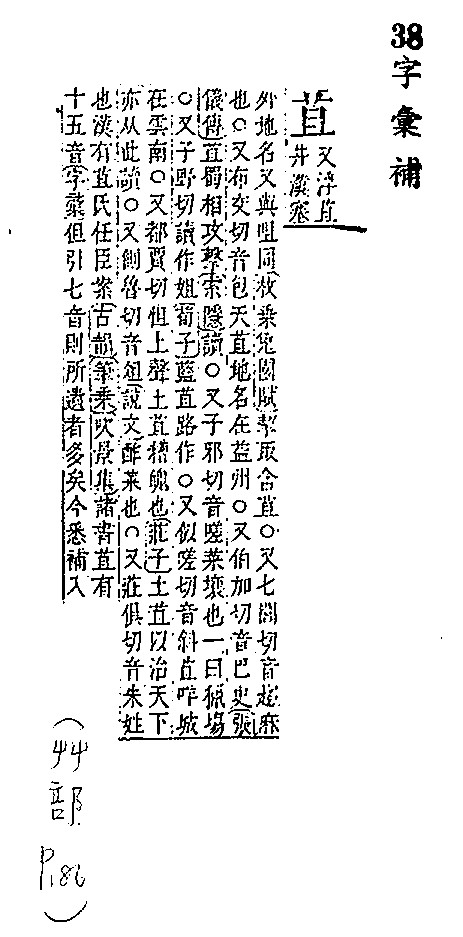 38字彙補
苴
又浮苴
井漢塞
外地名又與咀同枚乗兔園賦挈取含苴○又七閭切音趑麻
也○又布交切音包天苴地名在益州○又伯加切音巴史張
儀傳苴蜀相攻擊索隱讀○又子邪切音嗟菜壤也一曰獵場
○又子野切讀作姐荀子藍苴路作○又似嗟切音斜苴咩城
在雲南○又都賈切但上聲土苴糟魄也莊子土苴以治天下
亦从此讀○又側魯切音俎說文酢菜也○又莊俱切音朱姓
也漢有苴氏任臣案古韻筆乗吹景集諸書苴有
十五音字彙但引七音則所遺者多矣今悉補入
(艸部 P.186)